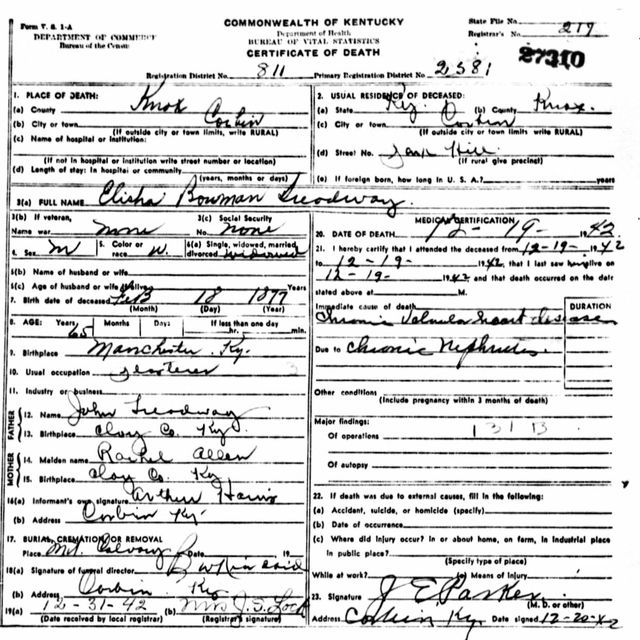 Form V. S. 1-A
DEPARTMENT OF COMMERCE
Bureau of the Census
COMMONWEALTH OF KENTUCKY
Department of Health
BUREAU OF VITAL STATISTICS
CERTIFICATE OF DEATH
State File No.
Registrar's No. 219
27310
Registration District No. 811 Primary Registration District No. 2581
1. PLACE OF DEATH:
(a) County Knox
(b) City or town Corbin
(If outside city or town limits, write RURAL)
(c) Name of hospital or institution:
(If not in hospital or institution write street number or location)
(d) Length of stay: In hospital or community
(years, months or days)
2. USUAL RESIDENCE OF DECEASED:
(a) State Ky. (b) County Knox.
(c) City or town Corbin
(If outside city or town limits, write RURAL)
(d) Street No. Hill
(If rural give precinct)
(e) If foreign born, how long in U. S. A.? years
3(a) FULL NAME Elisha Bowman Treadway.
3(b) If veteran, Name war none
3(c) Social Security No. none
4. Sex M 5. Color or race W. 6(a) Single, widowed, married, divorced widowed
6(b) Name of husband or wife
6(c) Age of husband or wife if alive Years
7. Birth date of deceased Feb 18 1877
(Month) (Day) (Year)
8. AGE: Years 65 Months Days If less than one day
hr. min.
9. Birthplace Manchester Ky.
10. Usual occupation
11. Industry or business
FATHER
12. Name John Treadway
13. Birthplace Clay Co. Ky.
MOTHER
14. Maiden name Rachel Allen
15. Birthplace Clay Co. Ky
16(a) Informant's own signature Arthur
(b) Address Corbin Ky
17. BURIAL, CREMATION OR REMOVAL
Place Mt. Calvary Date 19
18(a) Signature of funeral director
(b) Address Corbin Ky
19(a) 12-31-42 (b) Mrs J. S. Lock
(Date received by local registrar) (Registrar)
MEDICAL CERTIFICATION
20. DATE OF DEATH 12-19- 1942
21. I hereby certify that I attended the deceased from 12-19- 1942
to 12-19- 1942, that I last saw him alive on
12-19- 1942 and that death occurred on the date
stated above at M.
Immediate cause of death
DURATION
Chronic Valvular heart disease
Due to Chronic Nephritis.
Other conditions
(Include pregnancy within 3 months of death)
Major findings:
Of operations 131 B
Of autopsy
22. If death was due to external causes, fill in the following:
(a) Accident, suicide, or homicide (specify)
(b) Date of occurrence
(c) Where did injury occur? In or about home, on farm, in industrial place
in public place?
(Specify type of place)
While at work? (e) Means of injury
23. Signature J E Parker
(M. D. or other)
Address Corbin Ky. Date signed 12-20-42